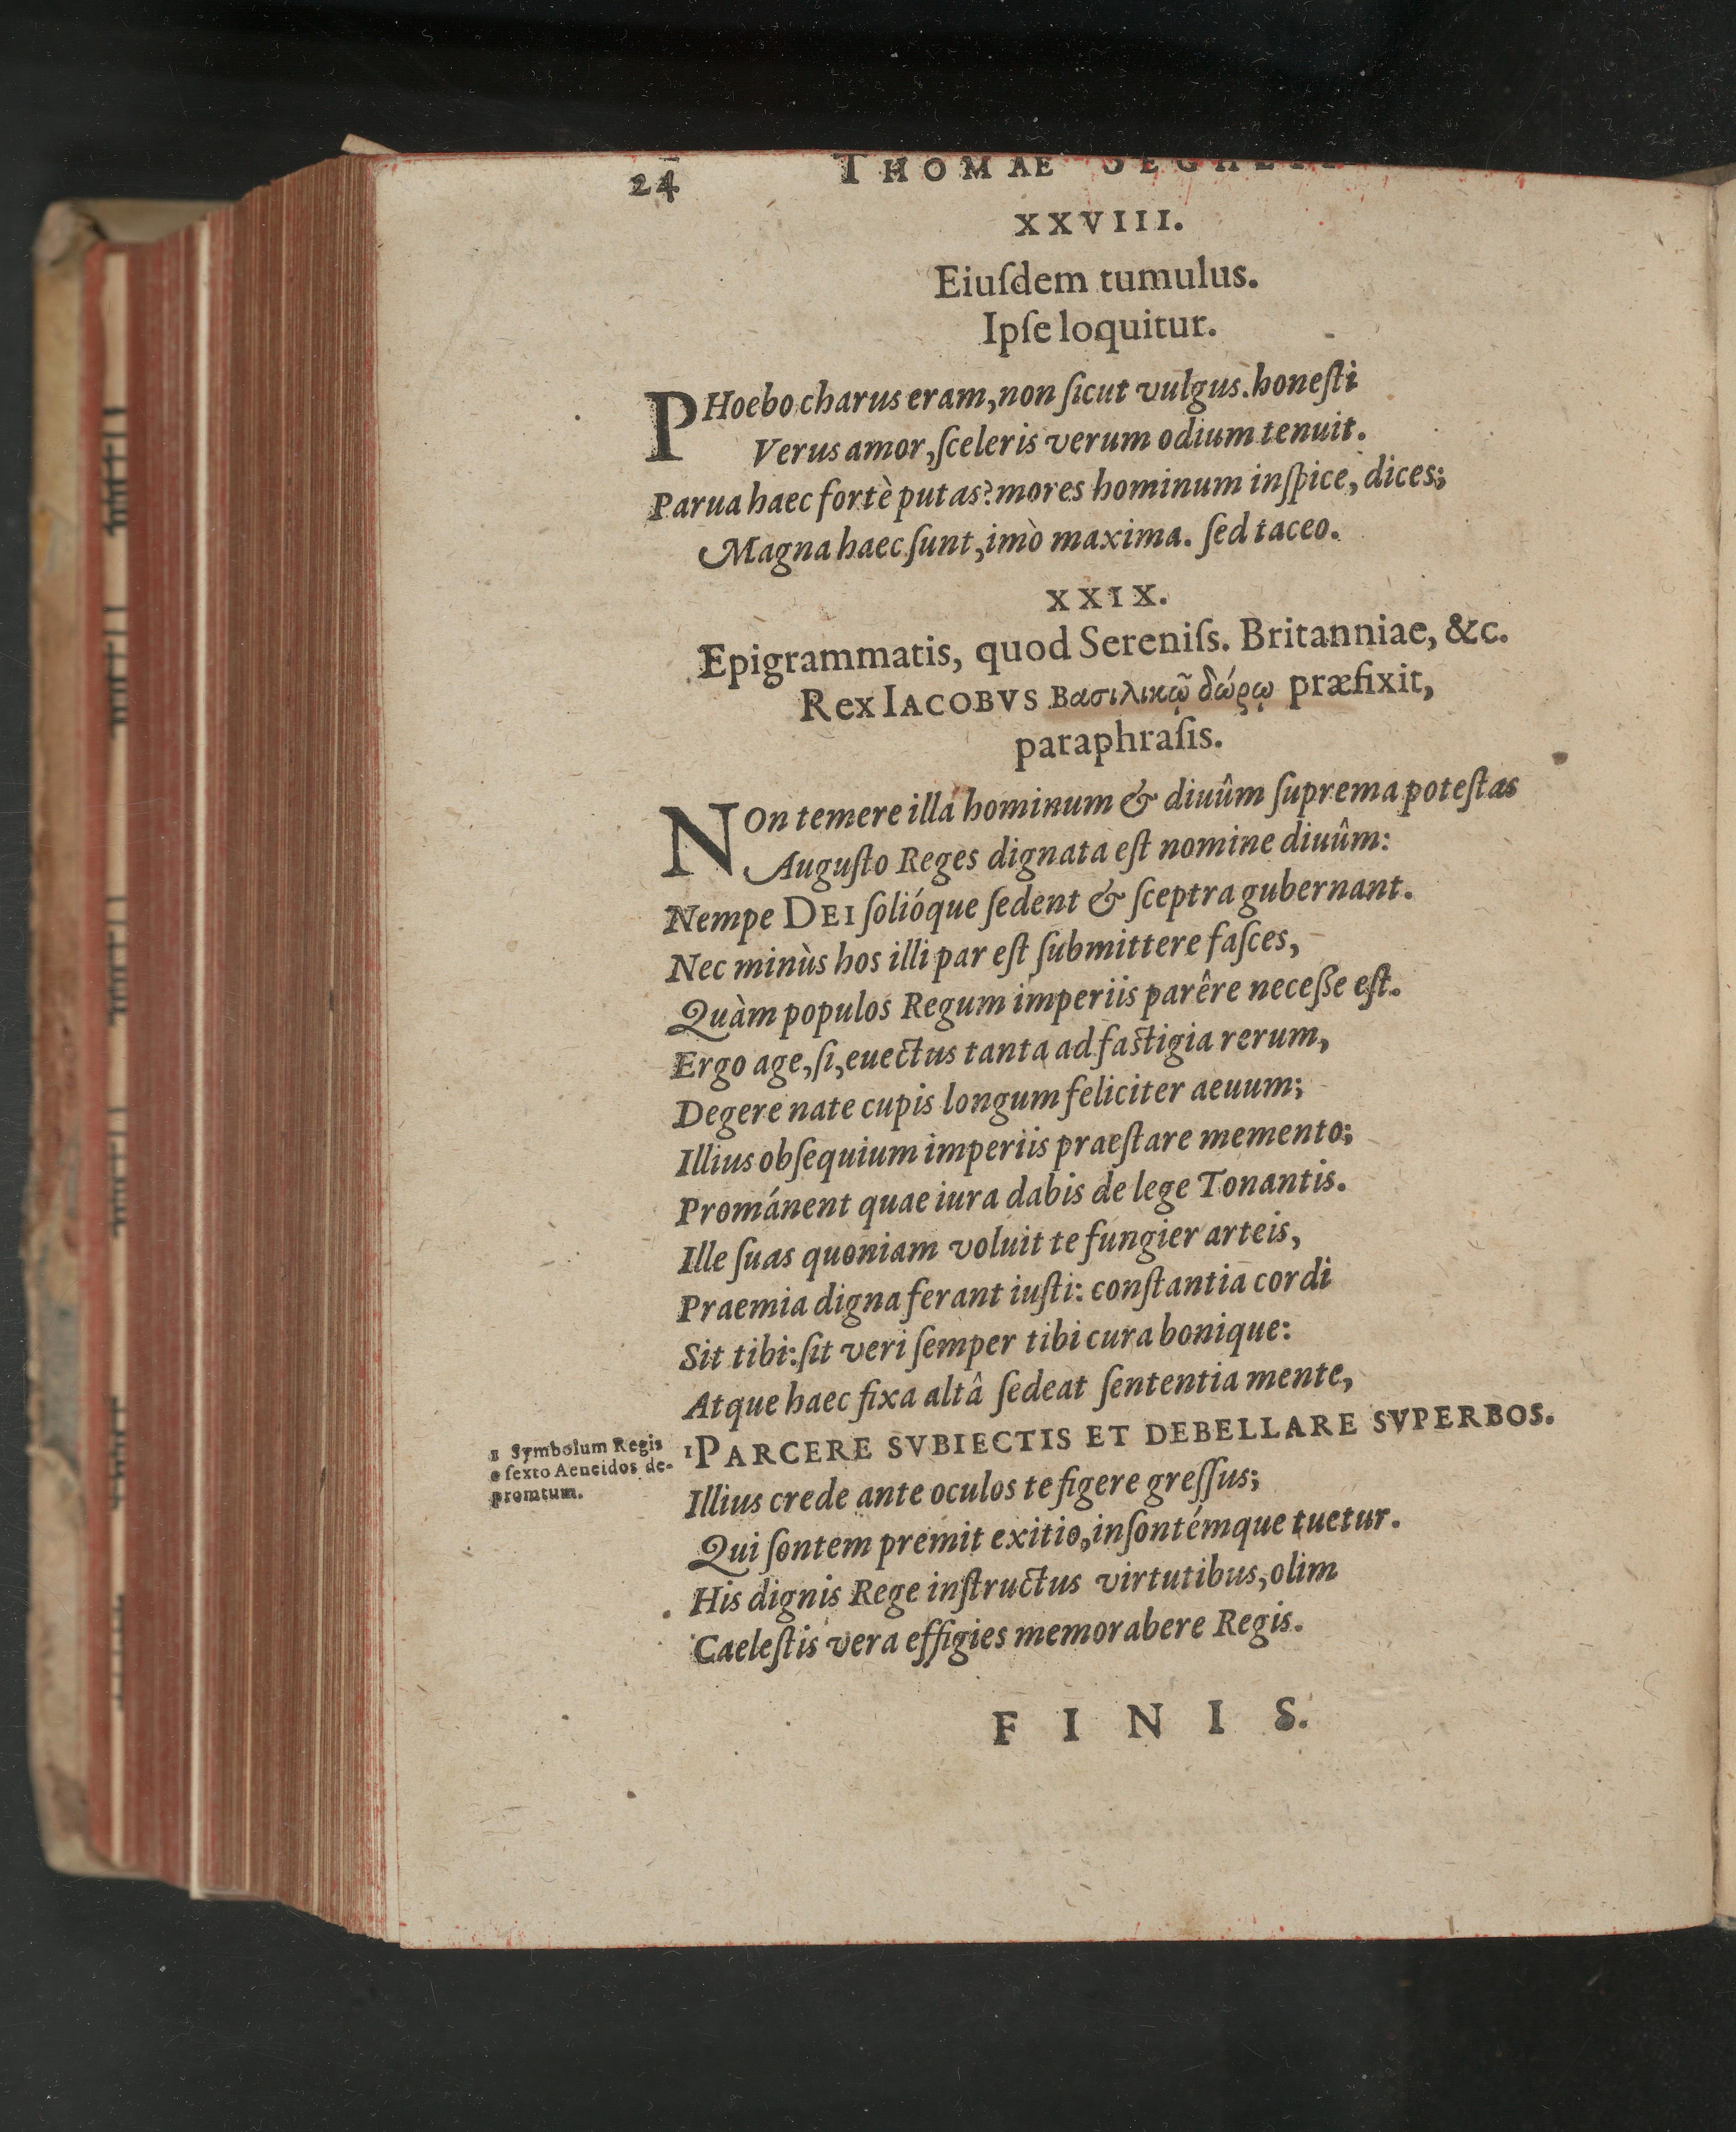 24 THOMAE SEGHETI
XXVIII.
Eiuſdem tumulus.
Ipſe loquitur.
PHoebo charus eram, non ſicut vulgus. honeſti
Verus amor, ſceleris verum odium tenuit.
Parua haec fortè putas? mores hominum inſpice, dices;
Magna haec ſunt, imò maxima. ſed taceo.
XXIX.
Epigrammatis, quod Sereniſs. Britanniae, &c.
Rex IACOBVS Βασιλικῷ δώρῳ præfixit,
paraphraſis.
NOn temere illa hominum & diuûm ſuprema poteſtas
Auguſto Reges dignata eſt nomine diuûm:
Nempe DEI ſolióque ſedent & ſceptra gubernant.
Nec minùs hos illi par eſt ſubmittere faſces,
Quàm populos Regum imperiis parêre neceſſe eſt.
Ergo age, ſi, euectus tanta ad faſtigia rerum,
Degere nate cupis longum feliciter aeuum;
Illius obſequium imperiis praeſtare memento;
Prománent quae iura dabis de lege Tonantis.
Ille ſuas quoniam voluit te fungier arteis,
Praemia digna ferant iuſti: conſtantia cordi
Sit tibi: ſit veri ſemper tibi cura bonique:
Atque haec fixa altâ ſedeat ſententia mente,
1 PARCERE SVBIECTIS ET DEBELLARE SVPERBOS.
1 Symbolum Regis
e ſexto Aeneidos de-
promtum.
Illius crede ante oculos te figere greſſus;
Qui ſontem premit exitio, inſontémque tuetur.
His dignis Rege inſtructus virtutibus, olim
Caeleſtis vera effigies memorabere Regis.
FINIS.